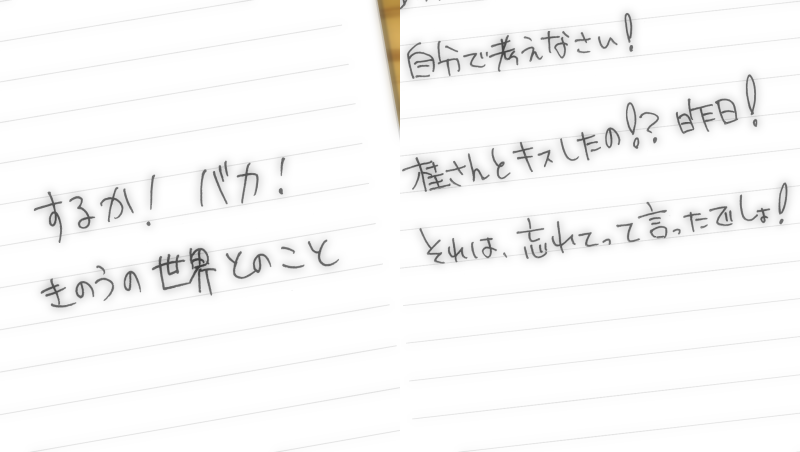 するか! バカ!
きのうの世界とのこと
自分で考えなさい!
桂さんとキスしたの!? 昨日!
それは、忘れてって言ったでしょ!